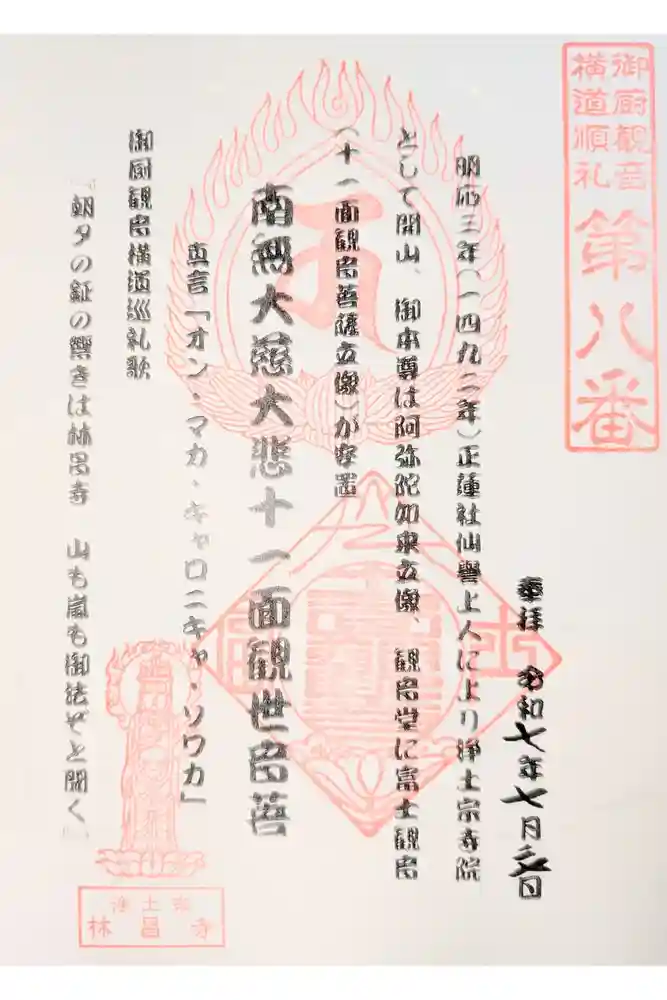 御厨観音
横道順礼
第八番
奉拝 令和七年七月 日
明応三年(一四九二年)正蓮社仙誉上人により浄土宗寺院
として開山、御本尊は阿弥陀如来立像、観音堂に富士観音
(十一面観音菩薩立像)が安置
南無大慈大悲十一面観世音菩
真言「オン・マカ・キャロニキャ・ソワカ」
御厨観音横道巡礼歌
『朝夕の鉦の響きは林昌寺 山も嵐も御法ぞと聞く』
浄土宗
林昌寺